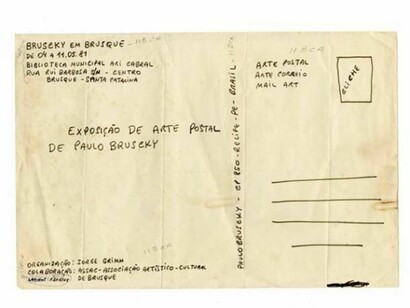 BRUSCKY EM BRUSQUE
DE 04 A 11.05.81
BIBLIOTECA MUNICIPAL ARI CABRAL
RUA RUI BARBOSA S/N - CENTRO
BRUSQUE - SANTA CATARINA
EXPOSIÇÃO DE ARTE POSTAL
DE PAULO BRUSCKY
ORGANIZAÇÃO: JORGE GRIMM
COLABORAÇÃO: ASSAC - ASSOCIAÇÃO ARTÍSTICO - CULTURAL
DE BRUSQUE
PAULO BRUSCKY - CP 850 - RECIFE - PE - BRASIL
ARTE POSTAL
ARTE CORREIO
MAIL ART
CLICHE